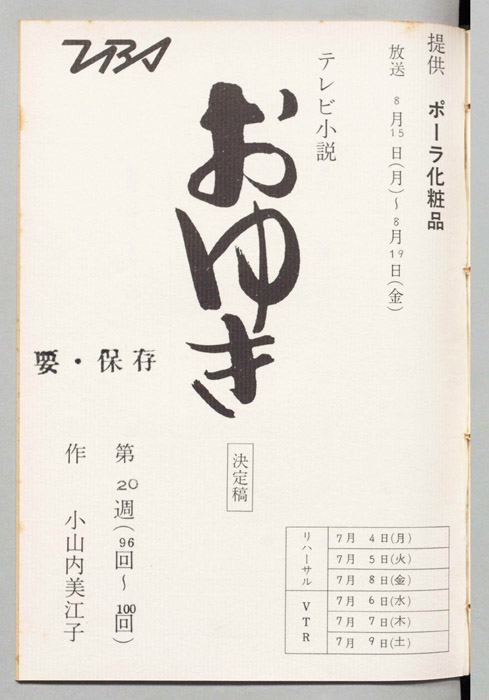 提供　ポーラ化粧品
放送　8月15日(月)～8月19日(金)
テレビ小説
おゆき
TBS
決定稿
要・保存
第20週(96回～100回)
作　小山内美江子
リハーサル
7月　4日(月)
7月　5日(火)
7月　8日(金)
VTR
7月　6日(水)
7月　7日(木)
7月　9日(土)